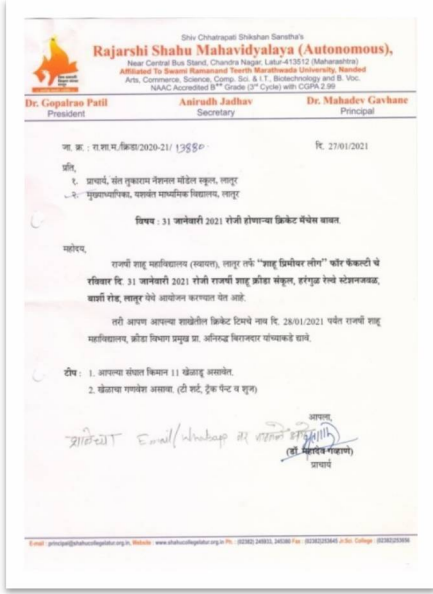 Shiv Chhatrapati Shikshan Sanstha's
Rajarshi Shahu Mahavidyalaya (Autonomous),
Near Central Bus Stand, Chandra Nagar, Latur-413512 (Maharashtra)
Affiliated To Swami Ramanand Teerth Marathwada University, Nanded
Arts, Commerce, Science, Comp. Sci. & I.T., Biotechnology and B. Voc.
NAAC Accredited B++ Grade (3rd Cycle) with CGPA 2.99
Dr. Gopalrao Patil Anirudh Jadhav Dr. Mahadev Gavhane
President Secretary Principal
जा. क्र. : रा.शा.म./क्रिडा/2020-21/ 13880 दि. 27/01/2021
प्रति,
१. प्राचार्य, संत तुकाराम नॅशनल मॉडेल स्कूल, लातूर
२. मुख्याध्यापिका, यशवंत माध्यमिक विद्यालय, लातूर
विषय : 31 जानेवारी 2021 रोजी होणाऱ्या क्रिकेट मॅचेस बाबत.
महोदय,
राजर्षी शाहू महाविद्यालय (स्वायत्त), लातूर तर्फे "शाहू प्रिमीयर लीग" फॉर फॅकल्टी चे
रविवार दि. 31 जानेवारी 2021 रोजी राजर्षी शाहू क्रीडा संकुल, हरंगुळ रेल्वे स्टेशनजवळ,
बार्शी रोड, लातूर येथे आयोजन करण्यात येत आहे.
तरी आपण आपल्या शाखेतील क्रिकेट टिमचे नाव दि. 28/01/2021 पर्यंत राजर्षी शाहू
महाविद्यालय, क्रीडा विभाग प्रमुख प्रा. अनिरुद्ध बिराजदार यांच्याकडे द्यावे.
टीप : 1. आपल्या संघात किमान 11 खेळाडू असावेत.
2. खेळाचा गणवेश असावा. (टी शर्ट, ट्रॅक पॅन्ट व शुज)
आपला,
Email/Whatsapp वर
(डॉ. महादेव गव्हाणे)
प्राचार्य
E-mail : principal@shahucollegelatur.org.in, Website : www.shahucollegelatur.org.in Ph. : (02382) 245933, Fax : (02382)253645 Jr.Sci. College :